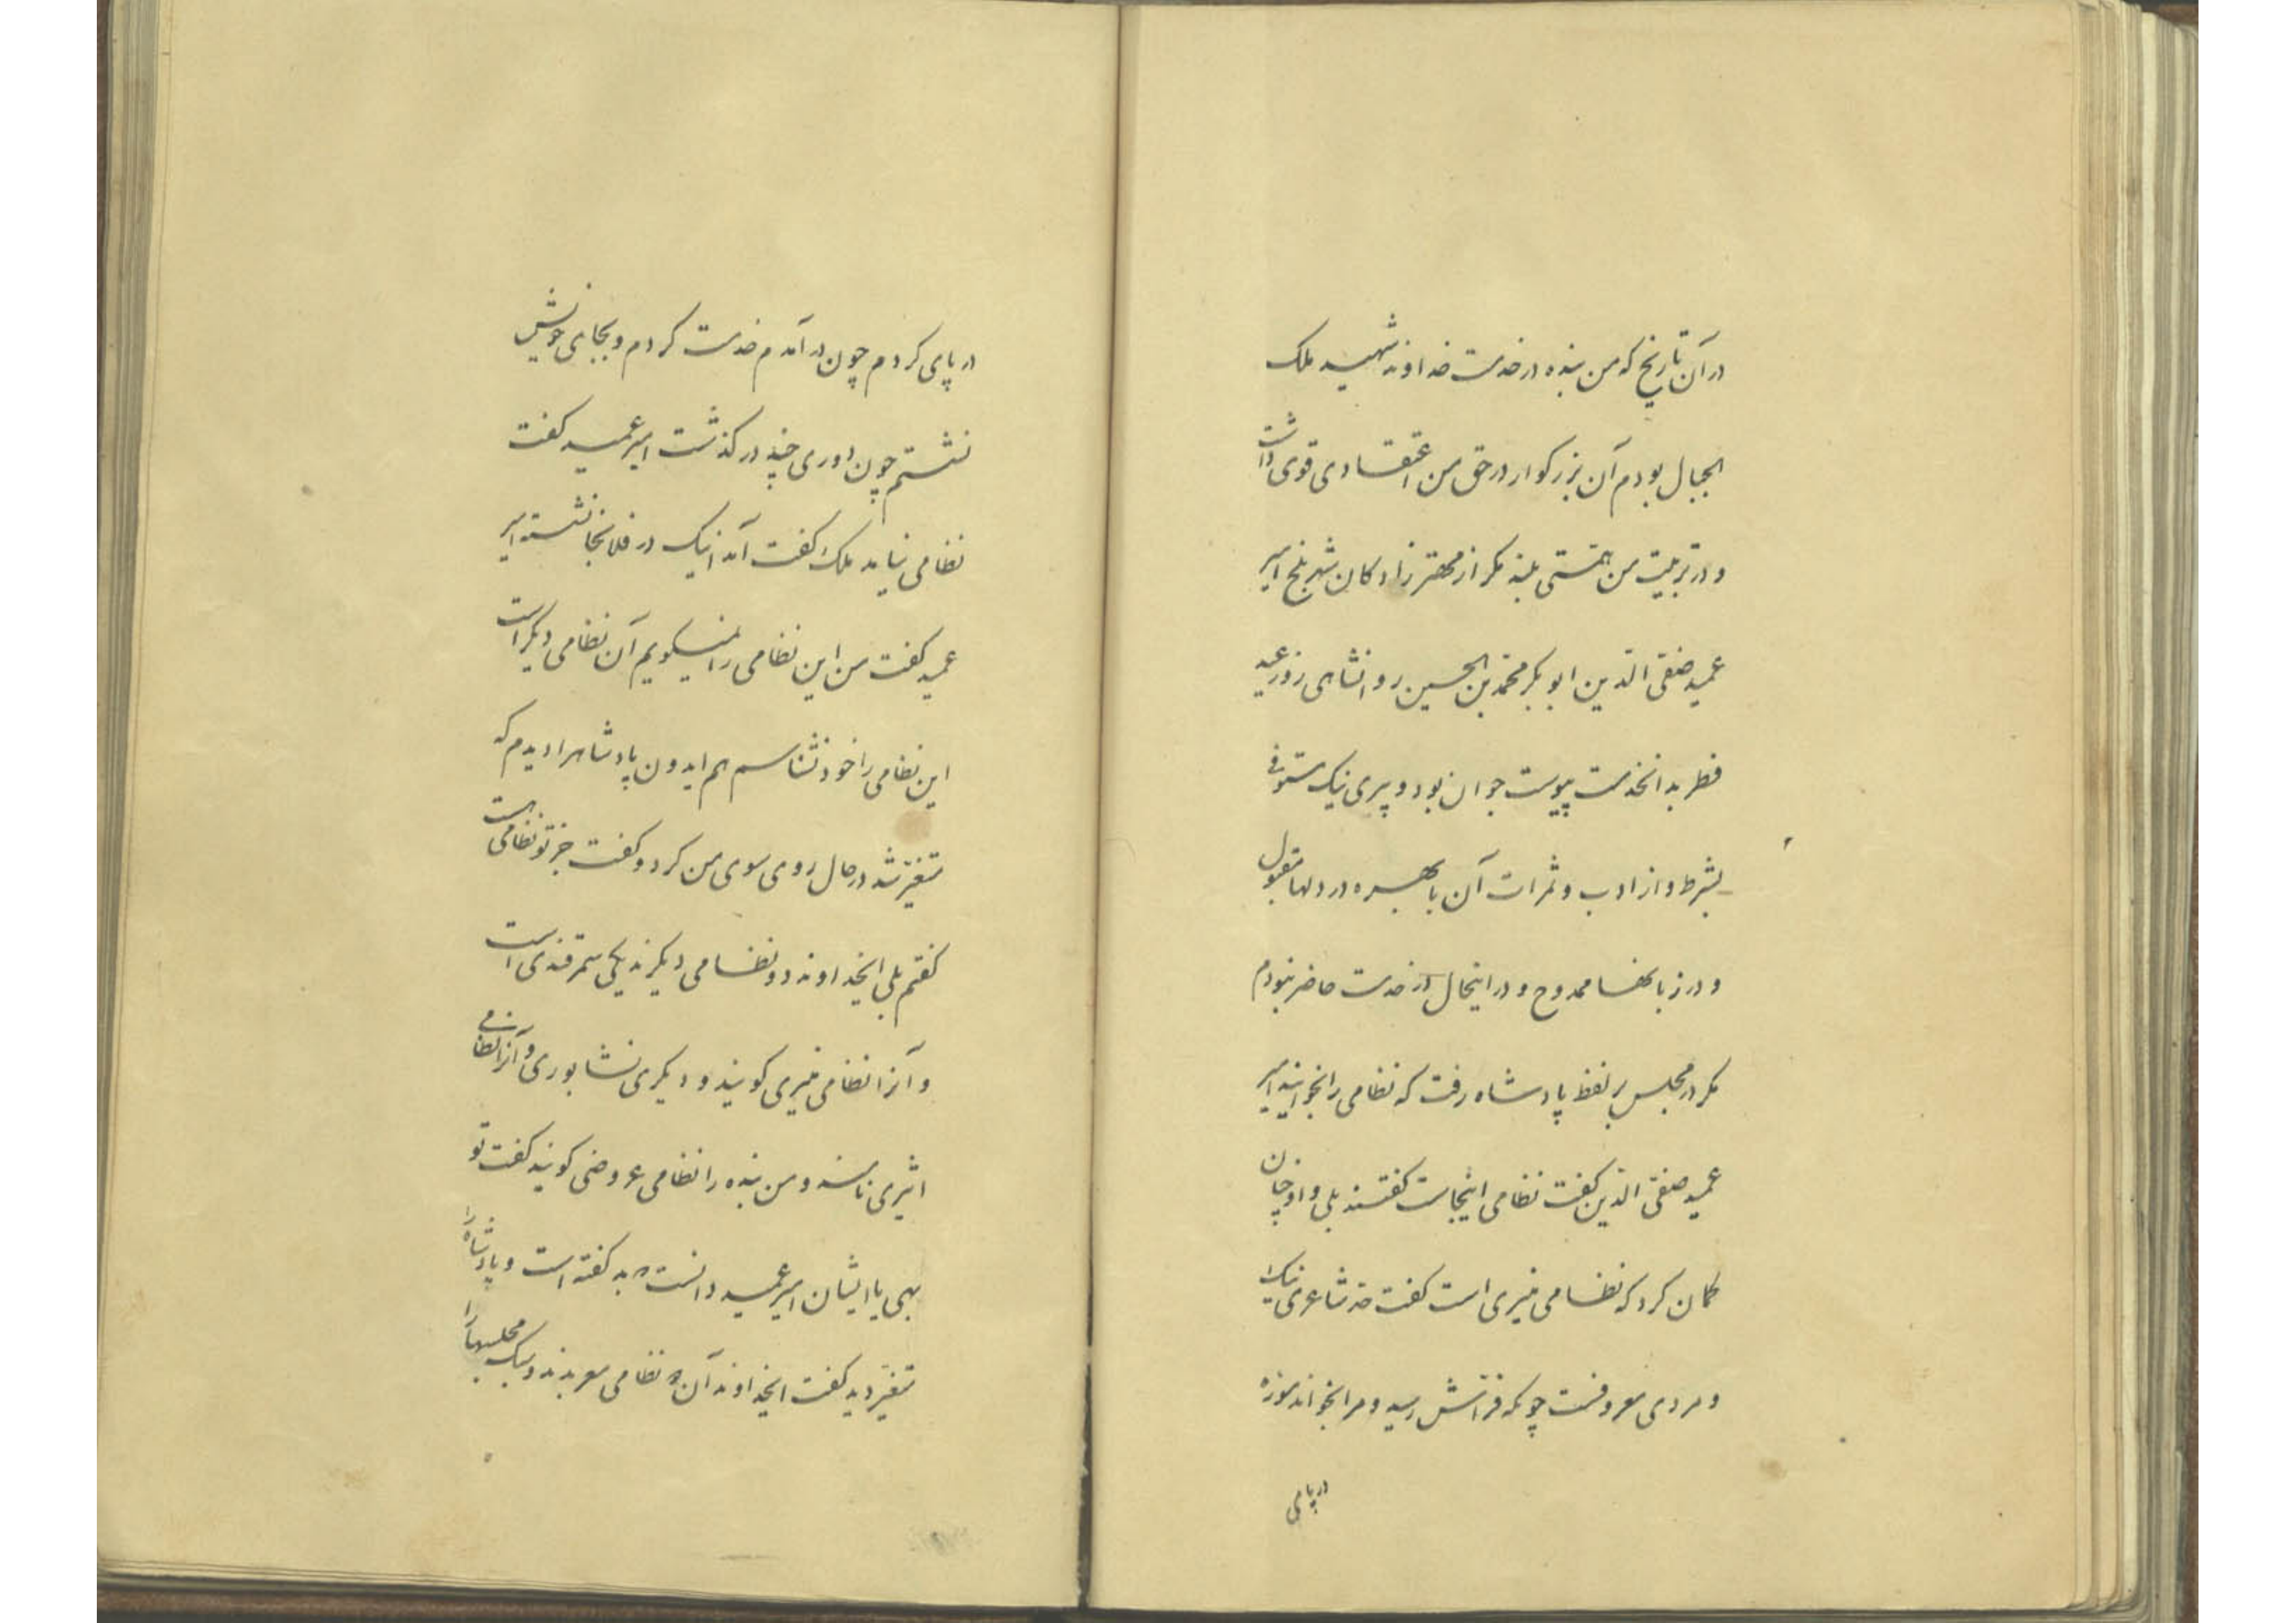 در آن تاریخ که من بنده در خدمت خداوند شهید ملک
الجبال بودم آن بزرگوار در حق من اعتقادی قوی داشت
و در تربیت من همتی بلند مگر از مهترزادگان شهر بلخ امیر
عمید صفی الدین ابو بکر محمد بن الحسین روانشاهی روز عید
فطر بدانخدمت پیوست جوان بود و پیری نیک مستوفی
بشرط و از ادب و ثمرات آن با بهره در دلها مقبول
و در زبانها ممدوح و در اینحال از خدمت حاضر نبودم
مگر در مجلس بر لفظ پادشاه رفت که نظامی را بخوانید امیر
عمید صفی الدین گفت نظامی اینجاست گفتند بلی و او چنان
گمان کرد که نظامی منیری است گفت خه شاعری نیک
و مردی معروفست چونکه فراش رسید و مرا بخواند موزه
در پای
در پای کردم چون در آمدم خدمت کردم و بجای خویش
نشستم چون دوری چند در گذشت امیر عمید گفت
نظامی نیامد ملک گفت آمد اینک در فلانجا نشسته امیر
عمید گفت من این نظامی را نمیگویم آن نظامی دیگر است
این نظامی را خود نشناسم هم ایدون پادشاه را دیدم که
متغیر شد در حال روی سوی من کرد و گفت جز تو نظامی هست
گفتم بلی ایخداوند دو نظامی دیگرند یکی سمرقندی است
و آنرا نظامی منیری گویند و دیگری نشابوری و آنرا نظامی
اثیری نامند و من بنده را نظامی عروضی گویند گفت تو
بهی یا ایشان امیر عمید دانست که بد گفته است و پادشاه را
متغیر دید گفت ایخداوند آن دو نظامی معربدند و سبک مجلسها را